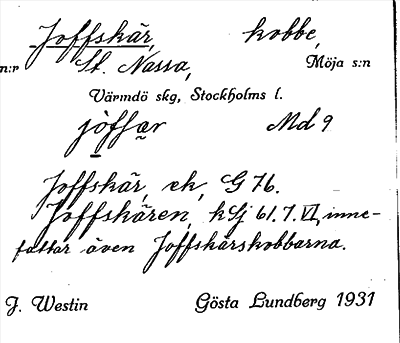 Joffskär, kobbe,
n:r St. Nassa, Möja s:n
Värmdö skg, Stockholms l.
jòffar Md 9
Joffskär, ek, G 76.
Joffskären, kSj 61.7.VI, inne-
fattar även Joffskärskobbarna.
J. Westin Gösta Lundberg 1931